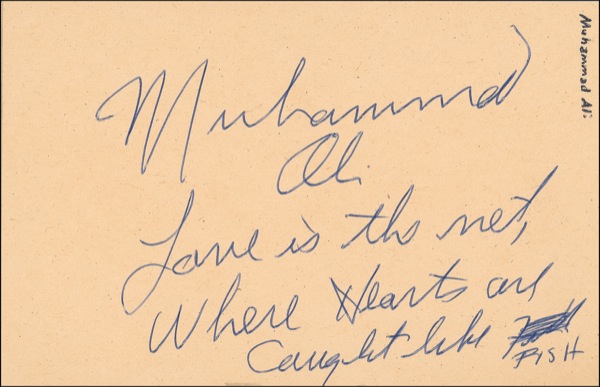 Muhammad
Ali
Love is the net,
Where Hearts are
Caught like
FISH
Muhammad Ali